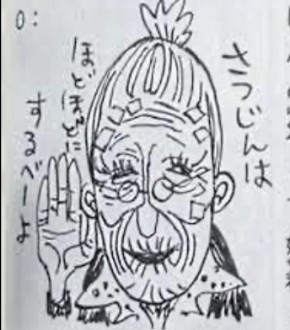 O:
さつじんは
ほどほどに
するべーよ